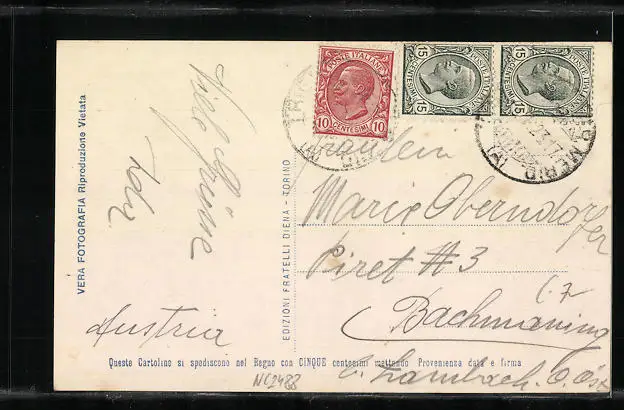 POSTE ITALIANE
10 CENTESIMI 10
15 CENTESIMI 15
15 CENTESIMI 15
Viele Grüsse
Fräulein
Marie Oberndorfer
Piret #3
Bachmaning
b. Lambach. O. Öst
Austria
VERA FOTOGRAFIA Riproduzione Vietata
EDIZIONI FRATELLI DIENA - TORINO
Queste Cartoline si spediscono nel Regno con CINQUE centesimi mettendo Provenienza data e firma
NC2488